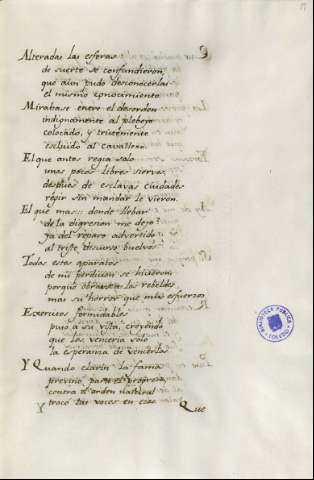 9
Alteradas las esferas
de suerte se confundieron,
que aun pudo desconocerlas
el mismo conocimiento
Mirabase entre el desorden
indignamente al plebeyo
colocado, y tristemente
escluido al cavallero
El que antes regia solo
unas pocas libres siervas
despues de esclavas ciudades
regir sin mandar le vieron.
El que mas:::: donde llebar
de la digresion me dejo
ya del reparo advertido
al triste discurso buelvo
Todos estos aparatos
de mi perdicion se hicieron
porque obrase en los rebeldes
mas su horror que mis esfuerzos
Exercitos formidables
puso a su vista, creyendo
que los venceria solo
la esperanza de vencerlos
Y Quando clarin la fama
previno para el progreso,
contra el orden natural
trocó las voces en ecos
Y Que
BIBLIOTECA PUBLICA
TOLEDO